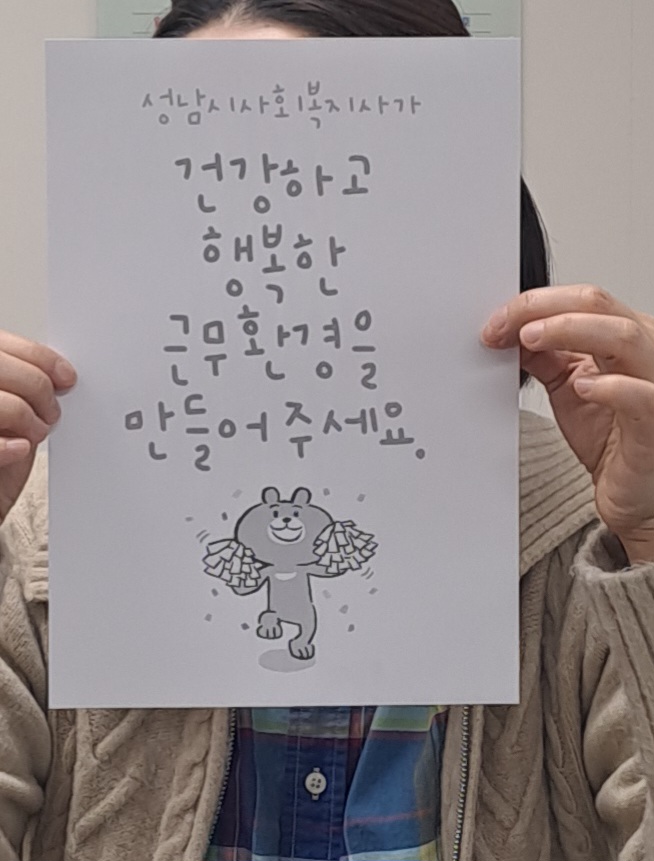 성남시사회복지사가
건강하고
행복한
근무환경을
만들어주세요.